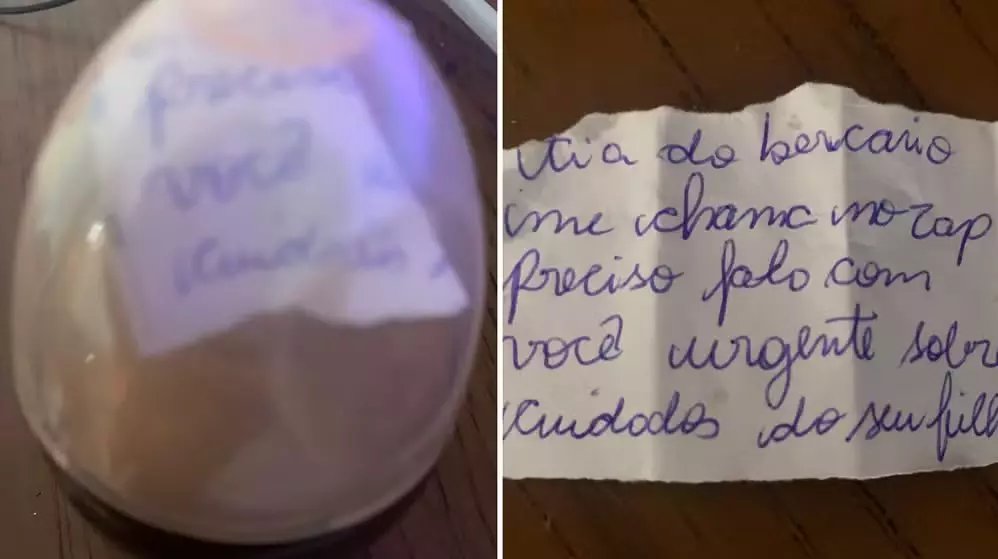 você
tia do bercario
me chama no zap
preciso falo com
você urgente sobre
cuidados do seu filh